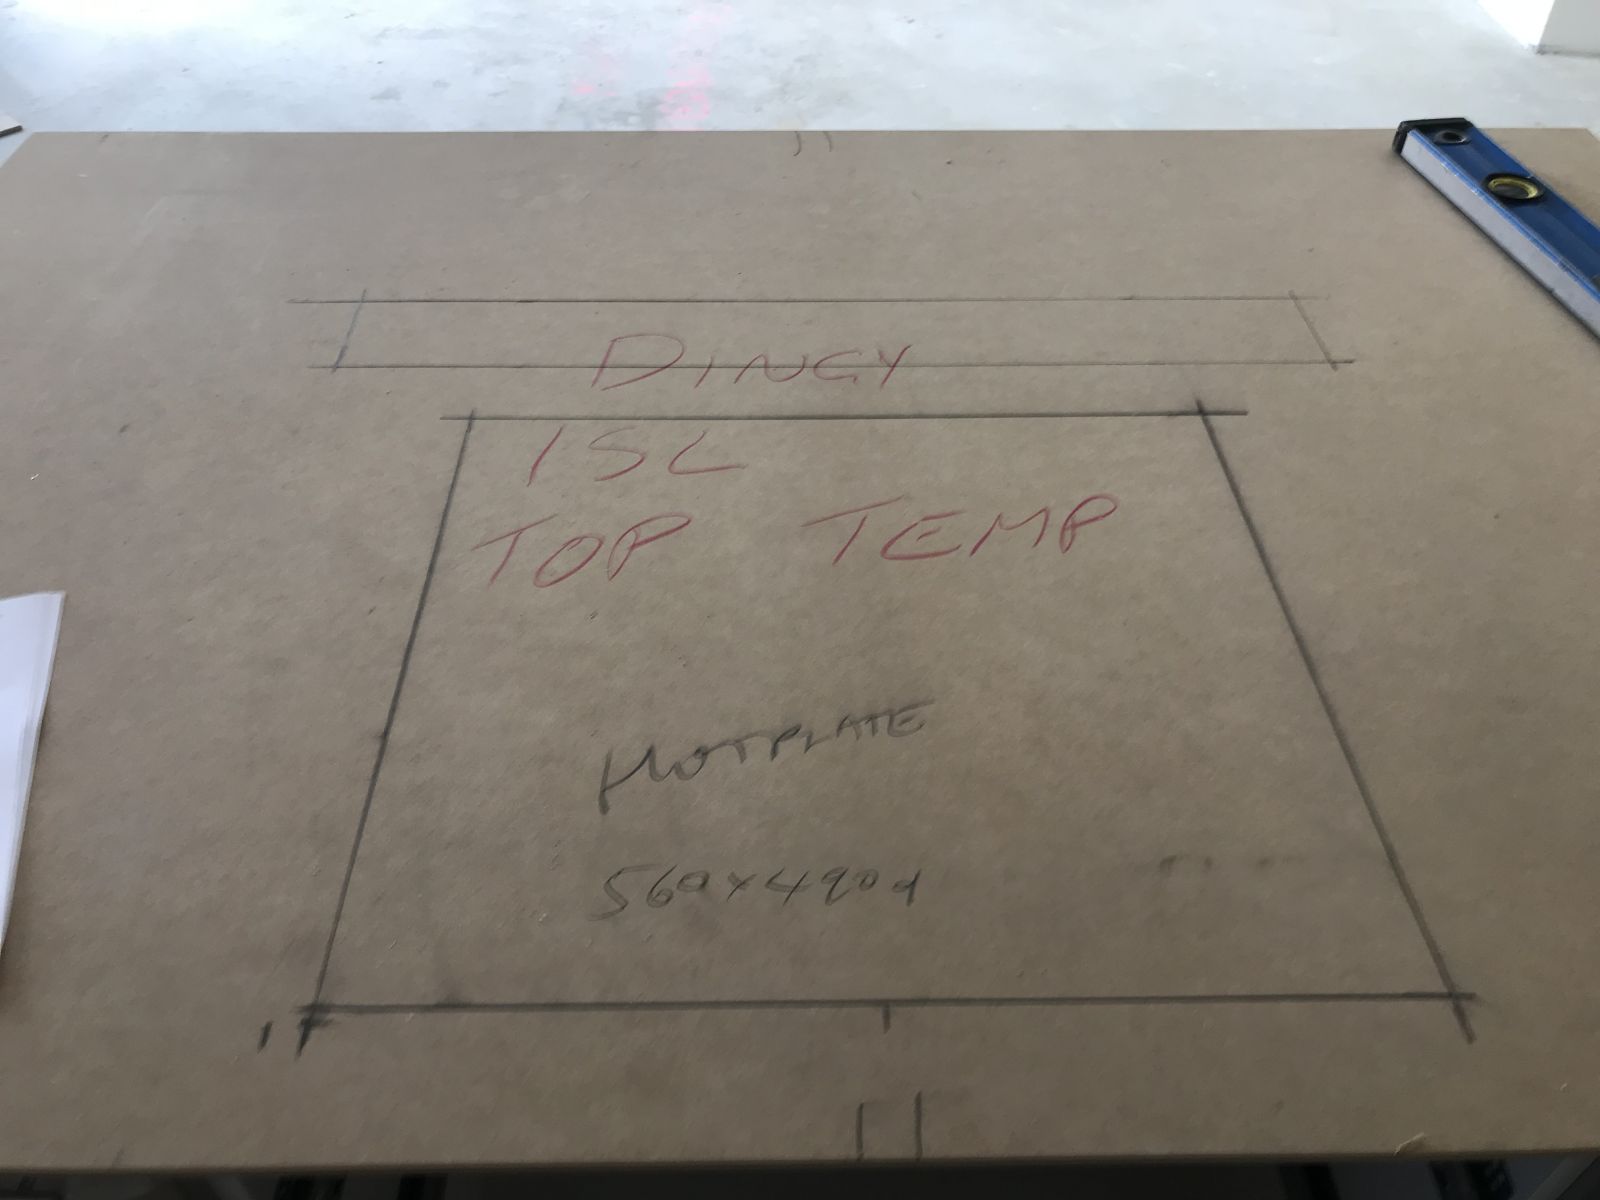 DINGY
ISL
TOP TEMP
HOTPLATE
560x490d